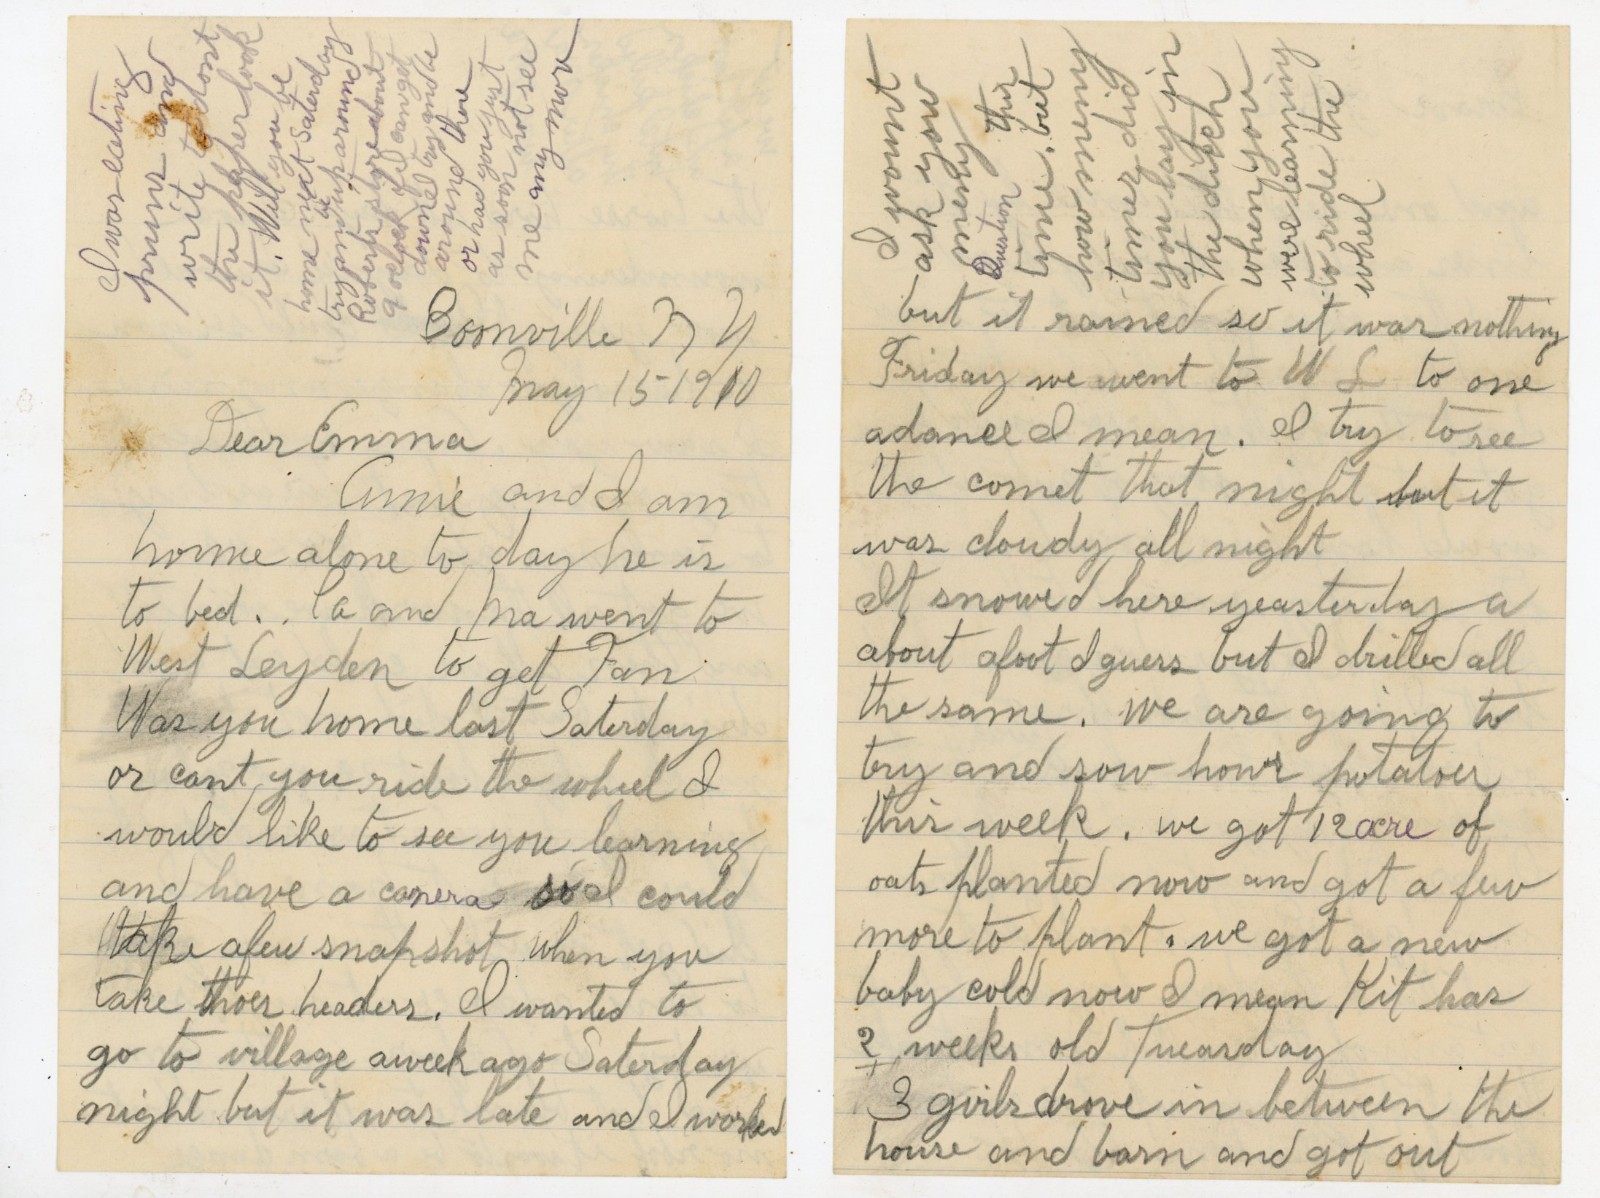 I was eating
prunes and
write to dont
the paper look
it. Will you be
home next Saterday
try and be up around
Roberts store about
9 oclock if I can get
down I try and be
around there
or had you just
as soon not see
me any mor
Boonville N Y
May 15 1910
Dear Emma
Annie and I am
home alone to day he is
to bed.. Pa and Ma went to
West Leyden to get Fan
Was you home last Saterday
or cant you ride the wheel I
would like to see you learning
and have a camera so I could
take afew snapshot when you
take thoes headers. I wanted to
go to village aweek ago Saterday
night but it was late and I worked
I wount
ask you
meny this
Question
time. but
how meny
times did
you lay in
the ditch
when you
were learning
to ride the
wheel
but it rained so it was nothing
Friday we went to W L to one
adance I mean. I try to see
the comet that night but it
was cloudy all night
It snowed here yeasterday a
about afoot I guess but I drilled all
the same. We are going to
try and sow hour potatoes
this week. we got 12 acre of
oats planted now and got a few
more to plant. we got a new
baby cold now I mean Kit has
2 weeks old Tuearsday
3 goirls drove in between the
house and barn and got out